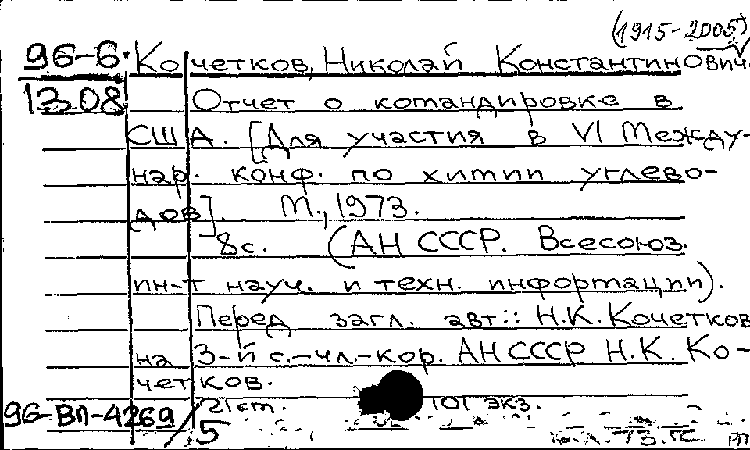 (1915-2005)
96-6 Кочетков, Николай Константинович.
13.08 Отчет о командировке в
США. [Для участия в VI Между-
нар. конф. по химии углево-
дов]. М., 1973.
8с. (АН СССР. Всесоюз.
ин-т науч. и техн. информации).
Перед загл. авт.: Н.К. Кочетков
на 3-й с.-чл-кор. АН СССР Н.К. Ко-
четков.
21 см. 101 экз.
96-ВЛ-4269/5